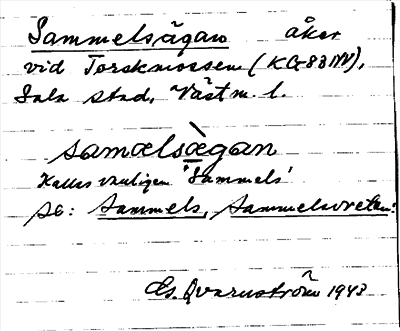 Sammelsägan åker
vid Torskmossen (KG83NV),
Sala stad, Västm. l.
samælsægan
Kallas vanligen 'Sammels'
Se: Sammels, Sammelsvreten!
Gs. Qvarnström 1943